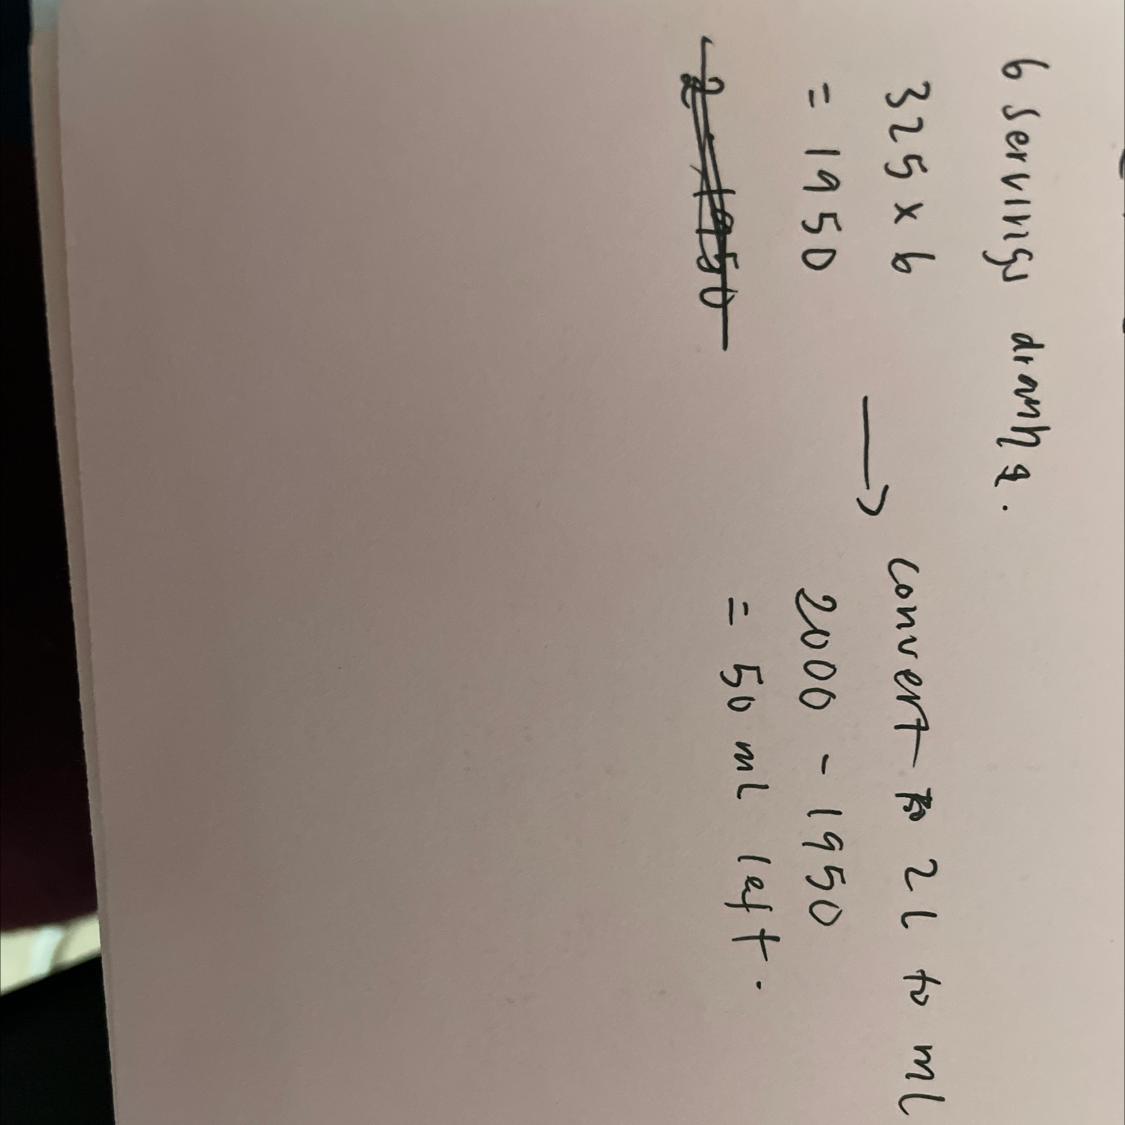 6 servings drank.
325 x 6
= 1950
2 - 1950
→ convert to 2L to ml
2000 - 1950
= 50 ml left.